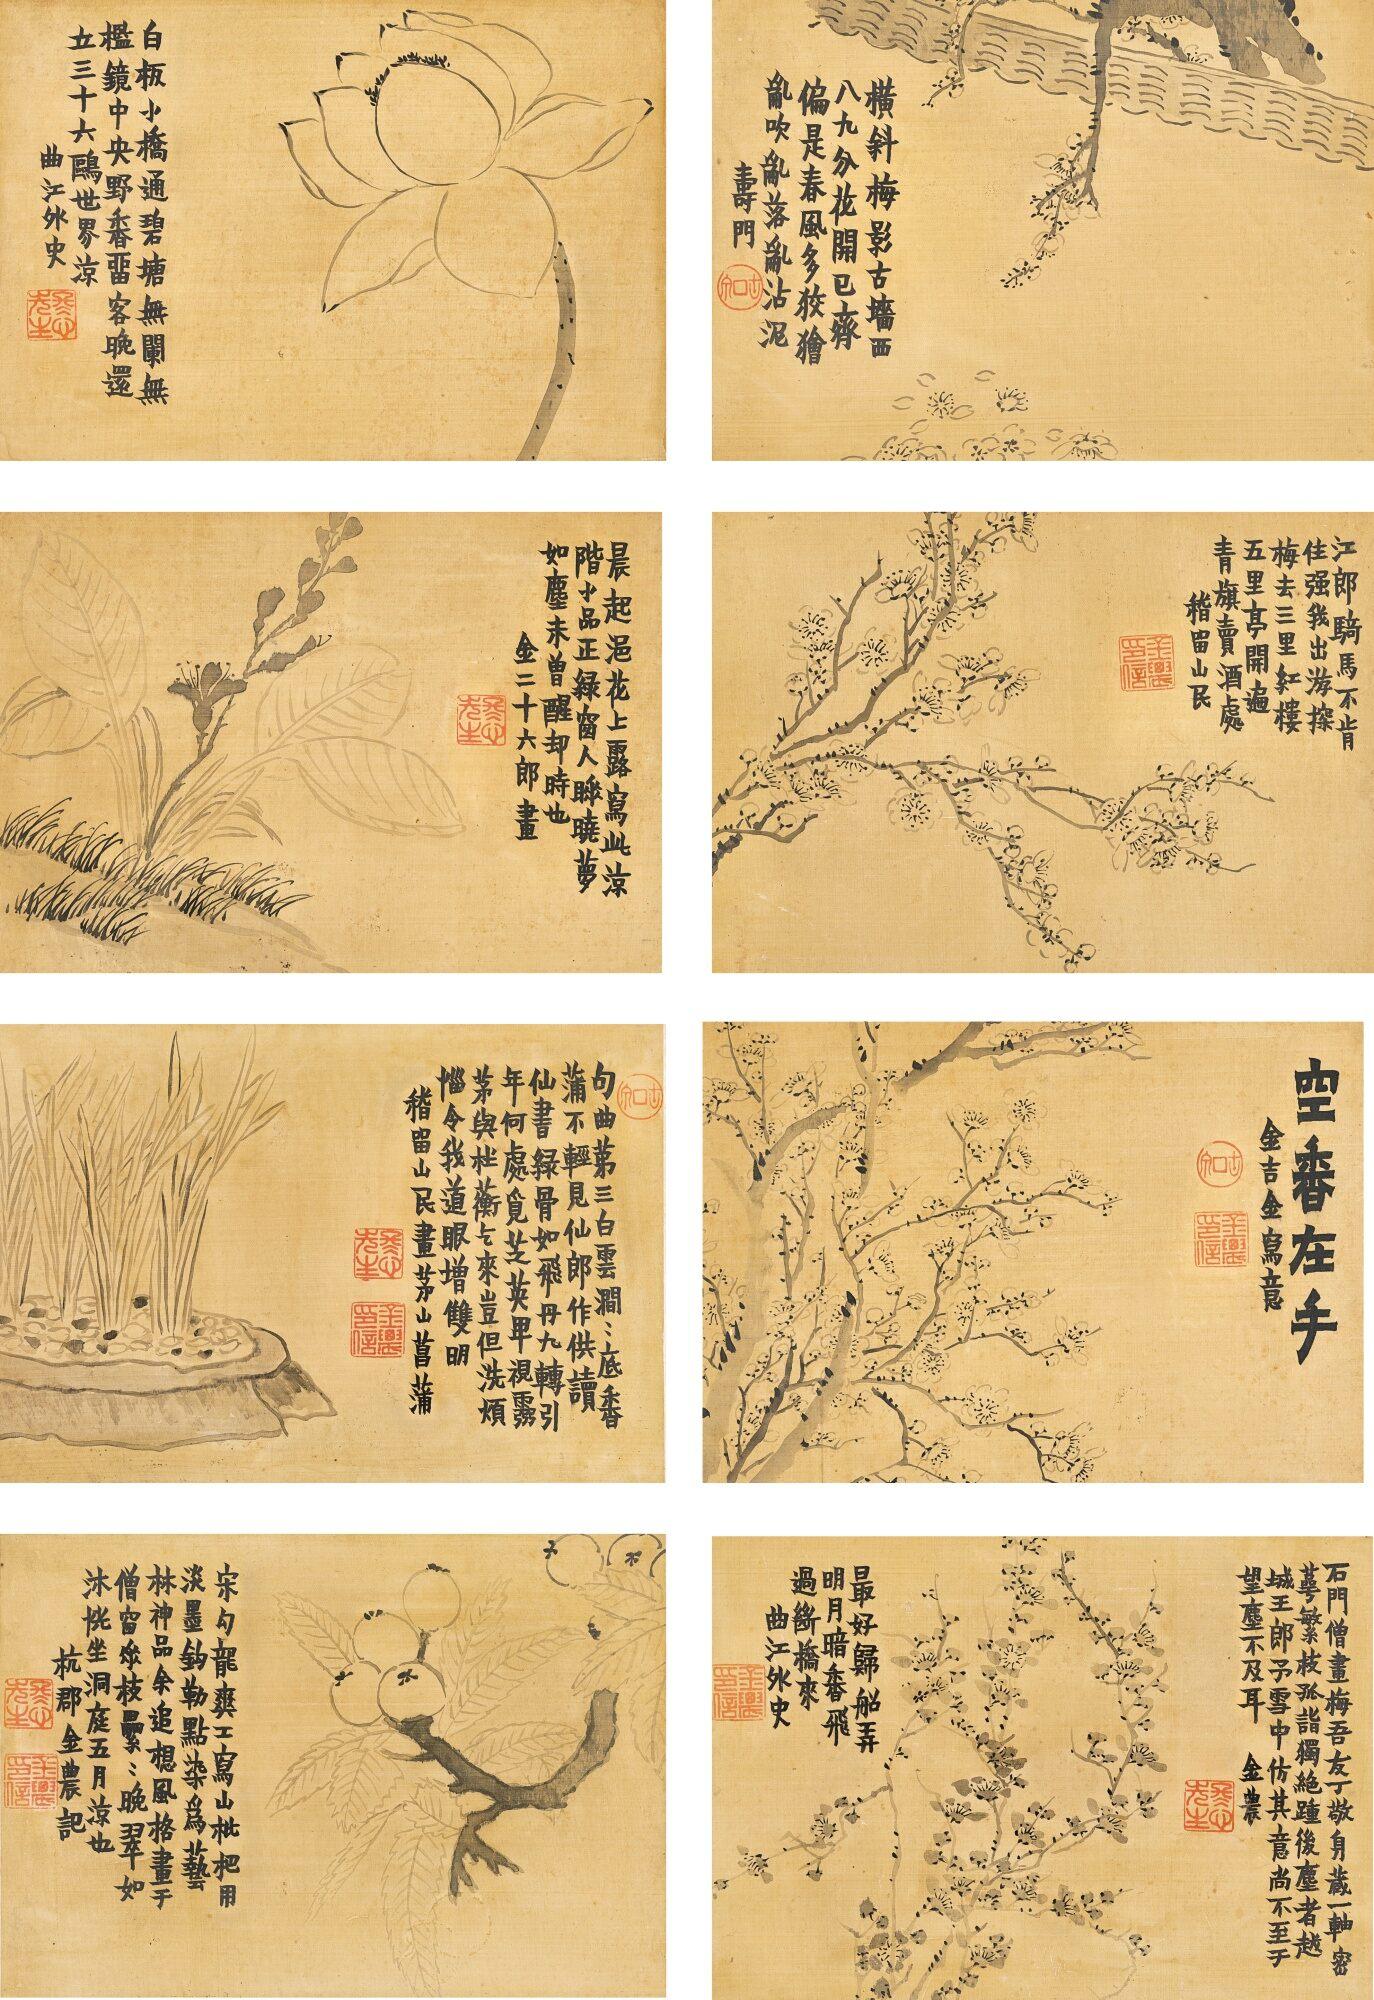 橫斜梅影古墻西
八九分花開已齊
偏是春風多狡獪
亂吹亂落亂沾泥
壽門
白板小橋通碧塘無闌無
檻鏡中央野香留客晚還
立三十六鷗世界涼
曲江外史
江郎騎馬不肯
住强我出游探
梅去三里紅樓
五里亭開遍
青旗賣酒處
稽留山民
晨起浥花上露寫此涼
階小品正綠窗人眸曉夢
如塵未曾醒却時也
金二十六郎畫
空香在手
金吉金寫意
句曲第三白雲澗〻底香
蒲不輕見仙郎作供讀
仙書緑骨如飛丹九轉引
年何處覓芝英卑視靈
茅與杜蘅乞來豈但洗煩
惱令我道眼增雙明
稽留山民畫茅山菖蒲
石門僧畫梅吾友丁敬身藏一軸密
萼繁枝孤詣獨絶踵後塵者越
城王郎予雪中仿其意尚不至于
望塵不及耳 金農
最好歸船弄
明月暗香飛
過斷橋來
曲江外史
宋勾龍爽工寫山枇杷用
淡墨鈎勒點染爲藝
林神品余追想風格畫于
僧窗幾枝纍〻晚翠如
沐恍坐洞庭五月涼也
杭郡金農記